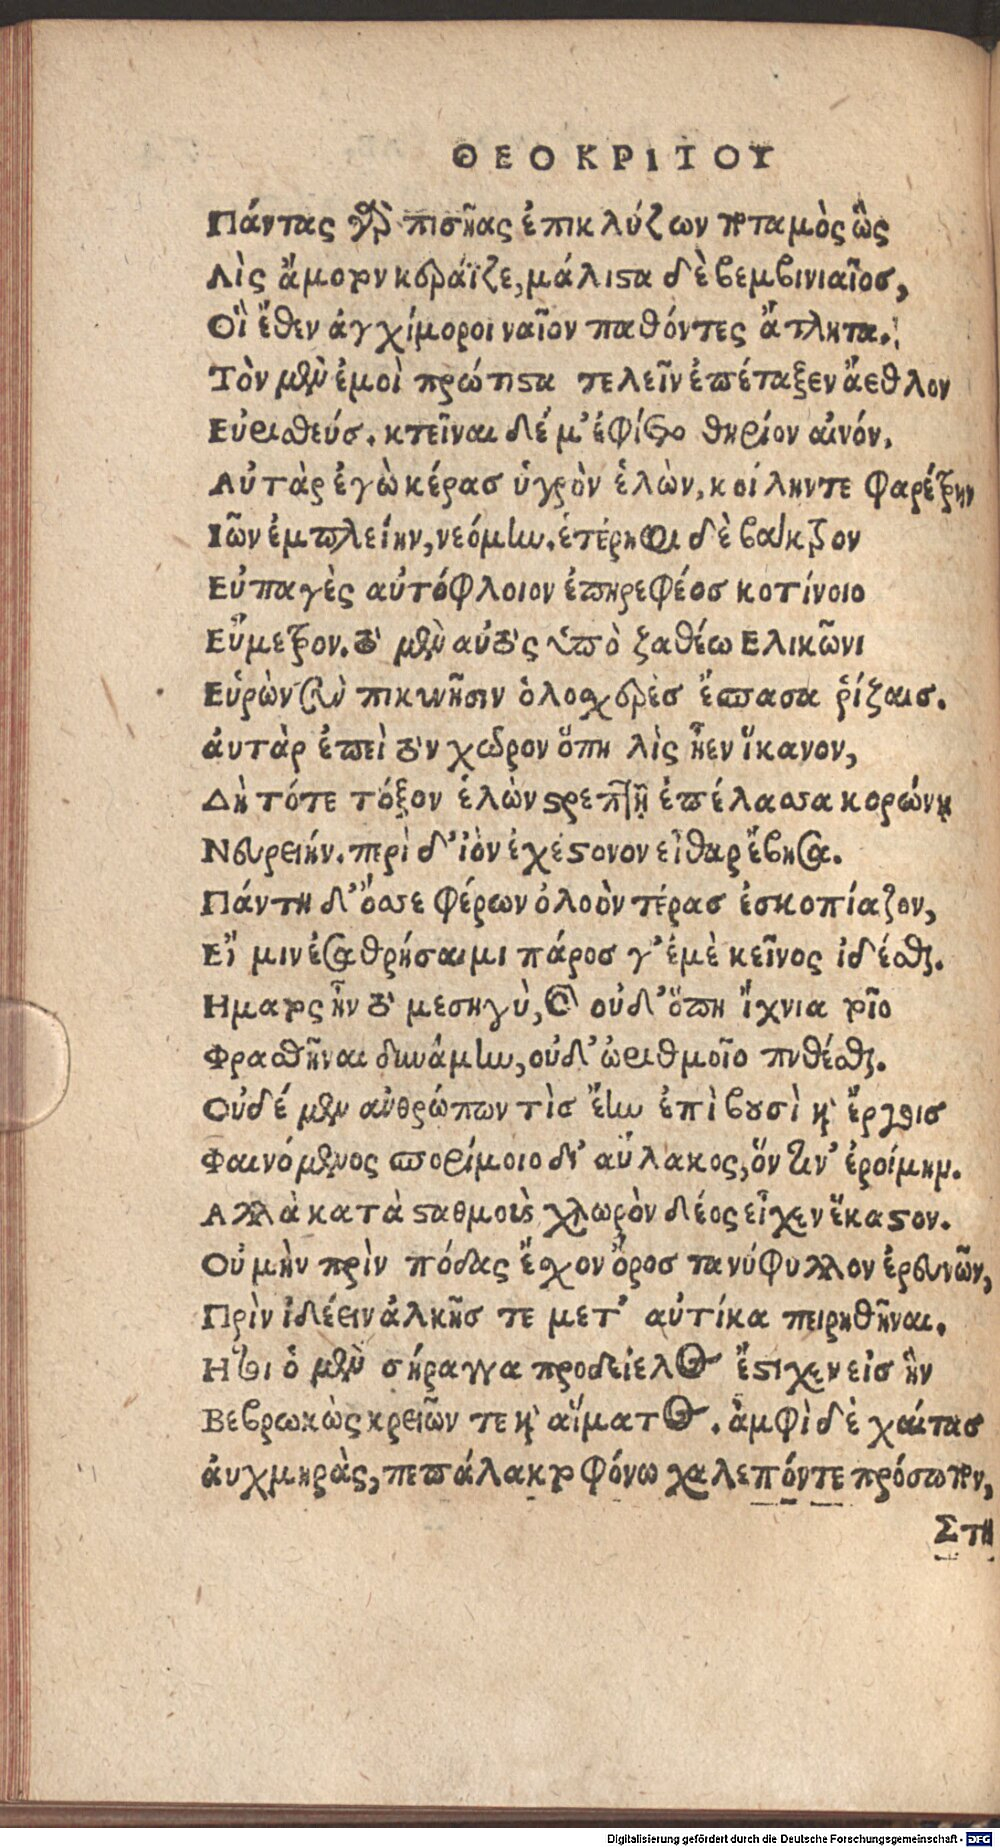 ΘΕΟΚΡΙΤΟΥ
Πάντας γὰρ πισῆας ἐπικλύζων ποταμὸς ὣς
Λὶς ἄμοτον κεράϊζε, μάλιστα δὲ βεμβινιαῖος,
Οἳ ἕθεν ἀγχίμοροι ναῖον παθόντες ἄτλητα.
Τὸν μὲν ἐμοὶ πρώτιστα τελεῖν ἐπέταξεν ἄεθλον
Εὐρισθεύς. κτεῖναι δέ μ' ἐφίετο θηρίον αἰνόν.
Αὐτὰρ ἐγὼ κέρας ὑγρὸν ἑλὼν, κοίλην τε φαρέτρην
Ἰῶν ἐμπλείην, νεόμην. ἑτέρηφι δὲ βάκτρον
Εὐπαγὲς αὐτόφλοιον ἐπηρεφέος κοτίνοιο
Εὔμετρον. τὸ μὲν αὐτὸς ὑπὸ ζαθέω Ελικῶνι
Εὑρὼν σὺν πυκινῇσιν ὁλοσχερὲς ἔσπασα ῥίζαις.
ἀυτὰρ ἐπεὶ τὸν χῶρον ὅπη λὶς ἦεν ἵκανον,
Δὴ τότε τόξον ἑλὼν στρεπτῇ ἐπέλασσα κορώνῃ
Νευρειήν. περὶ δ' ἰὸν ἐχέστονον εἶθαρ ἔβησα.
Πάντη δ' ὄσσε φέρων ὀλοὸν τέρας ἐσκοπίαζον,
Εἴ μιν ἐσαθρήσαιμι πάρος γ' ἐμὲ κεῖνος ἰδέσθαι.
Ημαρ τὸς ἦν τὸ μεσηγὺ, καὶ οὐδ' ὅπη ἴχνια τοῖο
Φρασθῆναι δυνάμην, οὐδ' ὠρυθμοῖο πυθέσθαι.
Οὐδέ μὲν ἀνθρώπων τὶς ἔην ἐπὶ βουσὶ καὶ ἔργοις
Φαινόμενος σπορίμοιο δι' αὔλακος, ὅν τιν' ἐροίμην.
Αλλὰ κατὰ σταθμοὺς χλωρὸν δέος εἶχεν ἕκαστον.
Οὐ μὴν πρὶν πόδας ἔσχον ὄρος τανύφυλλον ἐρευνῶν,
Πρὶν ἰδέειν ἀλκῆς τε μετ' αὐτίκα πειρηθῆναι.
Ητοι ὁ μὲν σήραγγα προδείελος ἔστιχεν εἰς ἣν
Βεβρωκὼς κρειῶν τε καὶ αἵματος. ἀμφὶ δὲ χαίτας
ἀυχμηρὰς, πεπάλακτο φόνω χαλεπόντε πρόσωπον,
Στη
Digitalisierung gefördert durch die Deutsche Forschungsgemeinschaft - DFG